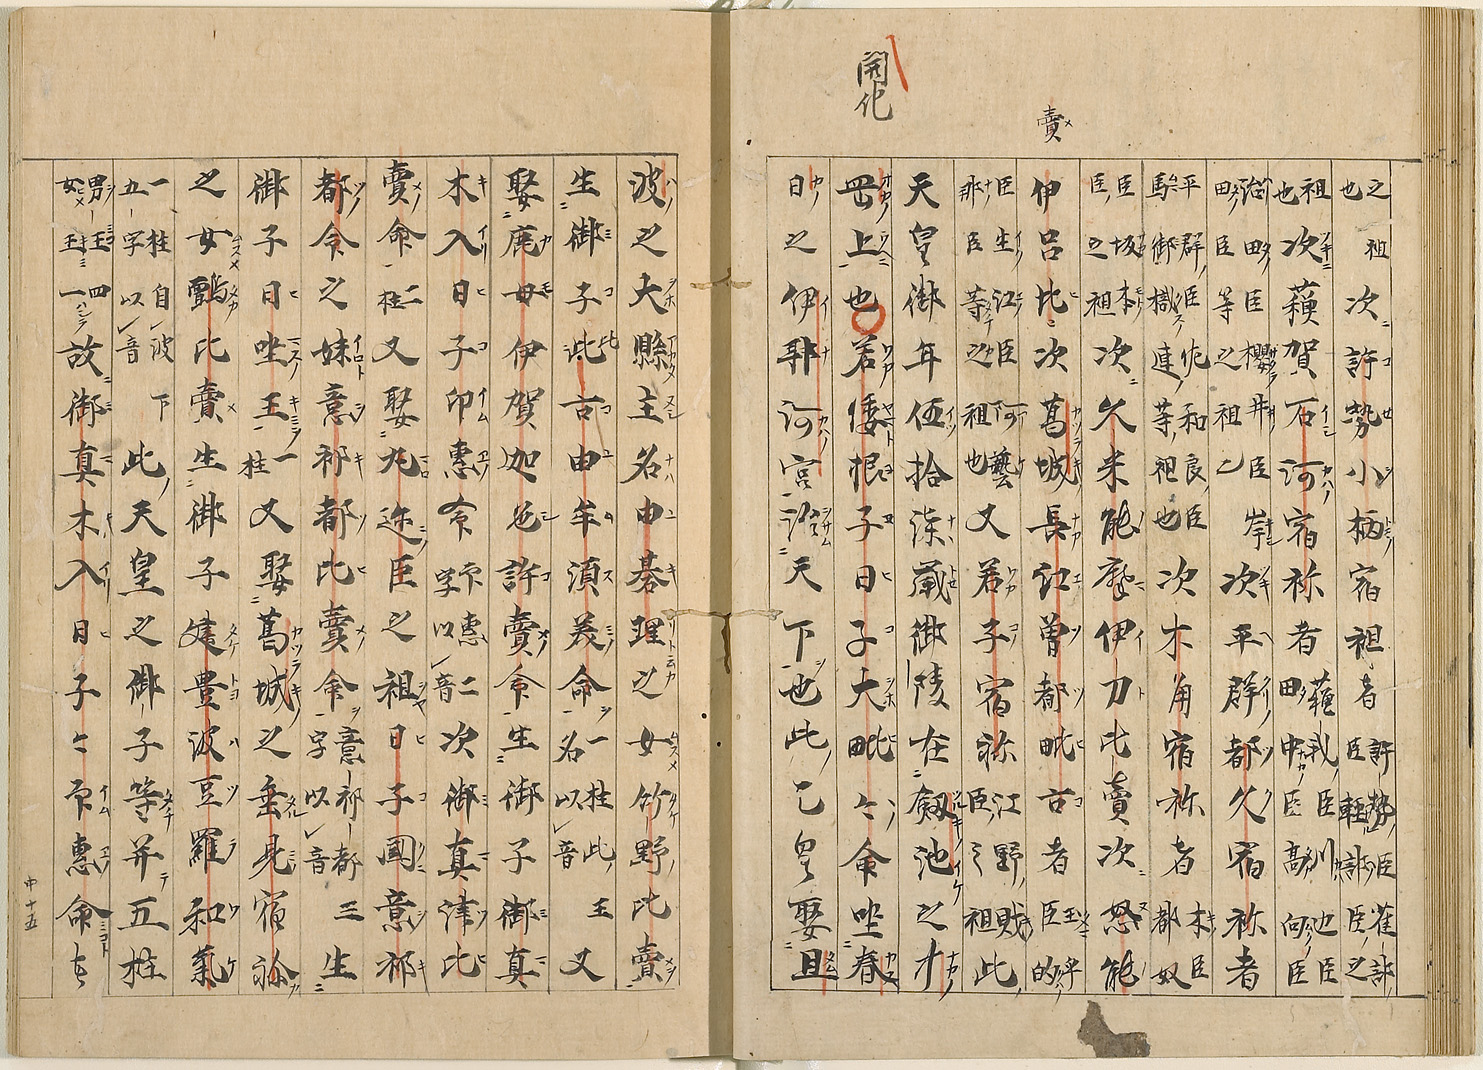 開化
賣メ
之祖也次許勢小柄宿祢者許勢臣雀部臣軽部臣之
祖也次蘓賀石河宿祢者蘓我臣川辺臣田中臣高向臣
治田臣櫻井臣岸田臣等之祖也次平群都久宿祢者
平群臣佐和良臣馬御樴連等祖也次木角宿祢者木臣都奴
臣坂本臣之祖次久米能摩伊刀比賣次怒能
伊呂比賣次葛城長江曽都毗古者玉手臣的
臣生江臣阿藝那臣等之祖也又若子宿祢江野財臣之祖此
天皇御年伍拾漆歳御陵在釼池之中
罡上也若倭根子日子大毗々命坐春
日之伊耶河宮治天下也此天皇娶旦
波之大縣主名由碁理之女竹野比賣
生御子比古由牟須美命一柱此王名以音又
娶庶母伊賀迦色許賣命生御子御真
木入日子印惠命印惠二字以音次御真津比
賣命二柱又娶丸迩臣之祖日子國意祁
都命之妹意祁都比賣命意祁都三字以音生
御子日坐王一柱又娶葛城之垂見宿祢
之女鸇比賣生御子建豊波豆羅和氣
一柱自波下五字以音此天皇之御子等并五柱
男王四女王一故御真木入日子々印惠命者
中十五